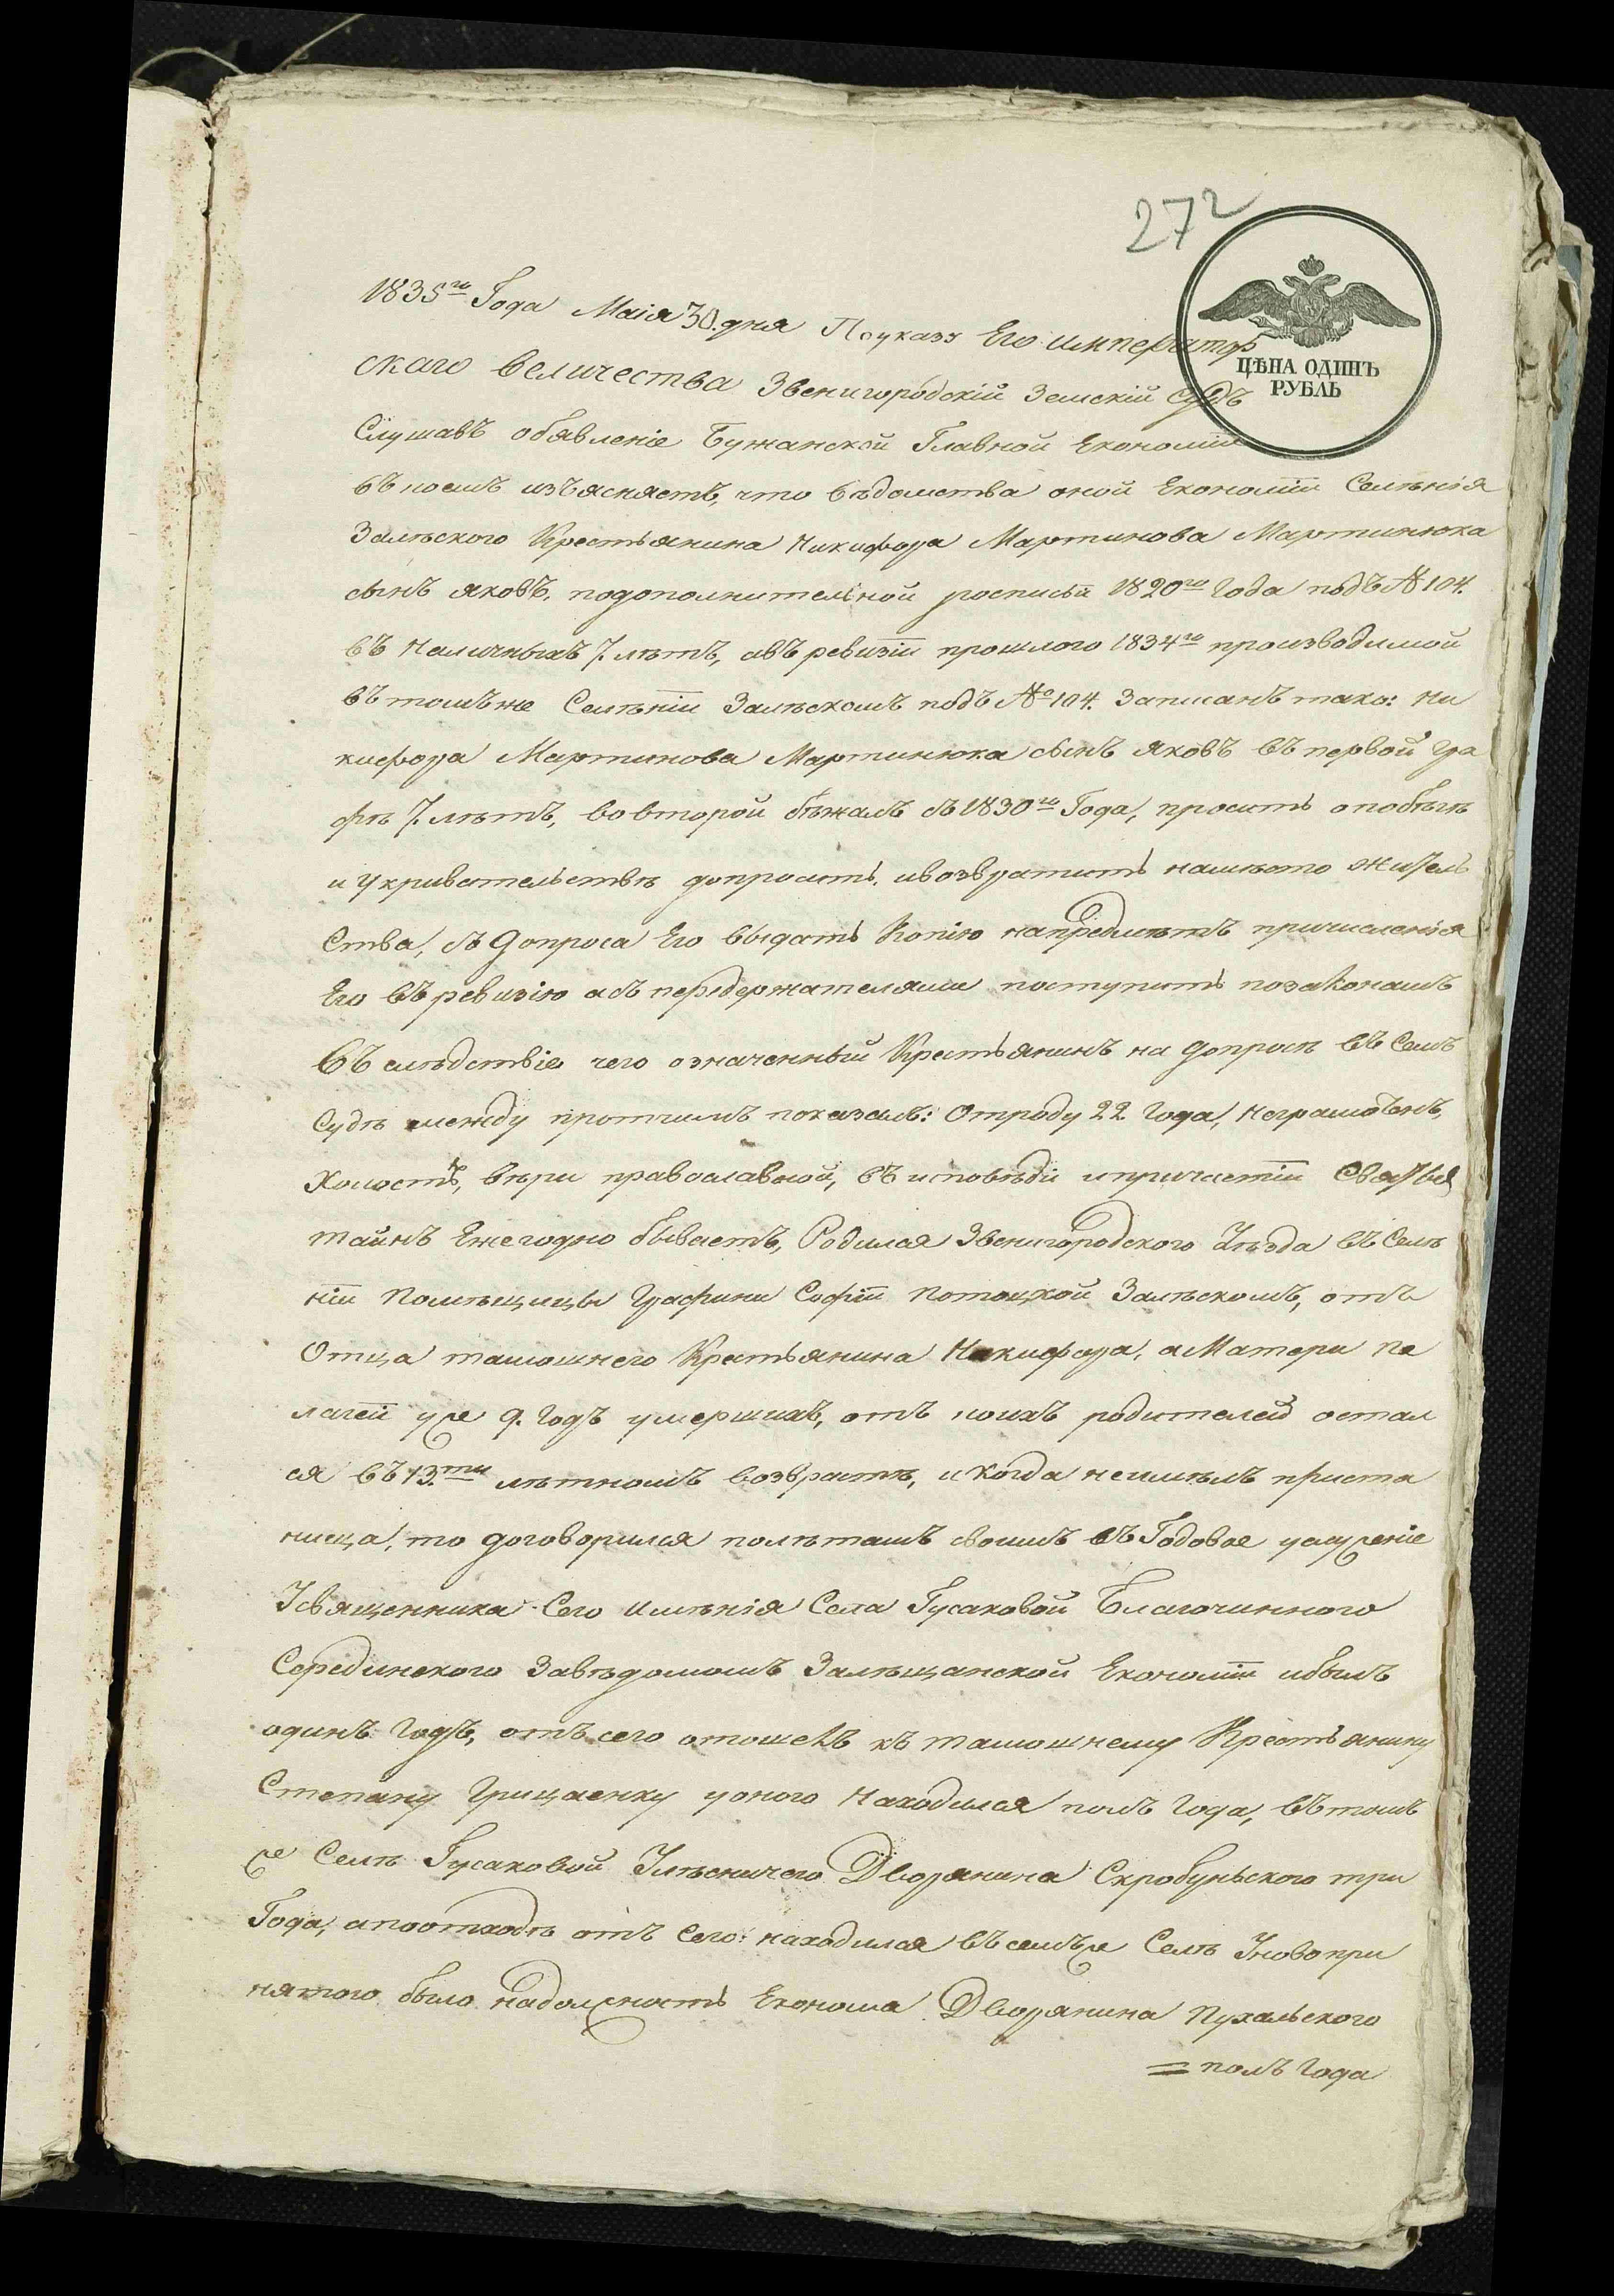 272
ЦѢНА ОДИНЪ
РУБЛЬ
1835го Года Маія 30. дня По указу Его император
скаго величества Звенигородскій Земскій Судъ
Слушавъ обявленіе Бужанской Главной Економіи
въ коемъ изъясняетъ, что вѣдомства оной Економіи Селѣнія
Залѣского Крестьянина Никифора Мартинова Мартинюка
сынъ яковъ, подополнительной росписьи 1820го Года подъ № 104.
въ наличныхъ 7. лѣтъ, авъ ревизіи прошлого 1834го производимой
въ томъже Селѣніи Залѣскомъ подъ № 104. Записанъ тако: Ни
кифора Мартинова Мартинюка сынъ яковъ въ первой гра
фѣ 7. лѣтъ, во второй бѣжалъ съ 1830го Года, просить опобѣгѣ
и укривательствѣ допросить, ивозвратить намѣсто житель
Ства, съ Допроса Его выдать Копію напредмѣтъ причисленія
Его въ ревизію асъ передержателями поступить позаконамъ
Въ слѣдствіе чего означенный Крестьянинъ на допросѣ въ Семъ
Судѣ между протчимъ показалъ: Отроду 22 Года, неграмотенъ,
Холостъ, вѣри православной, въ исповѣди ипричастіи Святыя
тайнъ Ежегодно бываетъ, Родился Звенигородского Уѣзда въ Селѣ
ніи Помѣщицы Графини Софіи Потоцкой Залѣскомъ, отъ
Отца тамошнего Крестьянина Никифора, а Матери Пе
лагеи уже 9. Годъ умершихъ, отъ коихъ родителей остал
ся въ 13.ти лѣтномъ возврастѣ, и когда неимѣлъ приста
нища, то договорился полѣтамъ своимъ въ Годовое услуженіе
Усвященника Сего имѣнія Села Гусаковой Благочинного
Серединского Завѣдомомъ Залѣщанской Економіи ибылъ
одинъ Годъ, отъ сего отошелъ къ тамошнему Крестьянину
Степану Грицаенку уоного Находился полъ Года, въ томъ
же Селѣ Гусаковой Улѣсничего Дворянина Скробуньского три
Года, апоотходѣ отъ Сего: находился въ семъже Селѣ Уновопри
нятого было надолжность Економа Дворянина Пухальского
= полъ Года